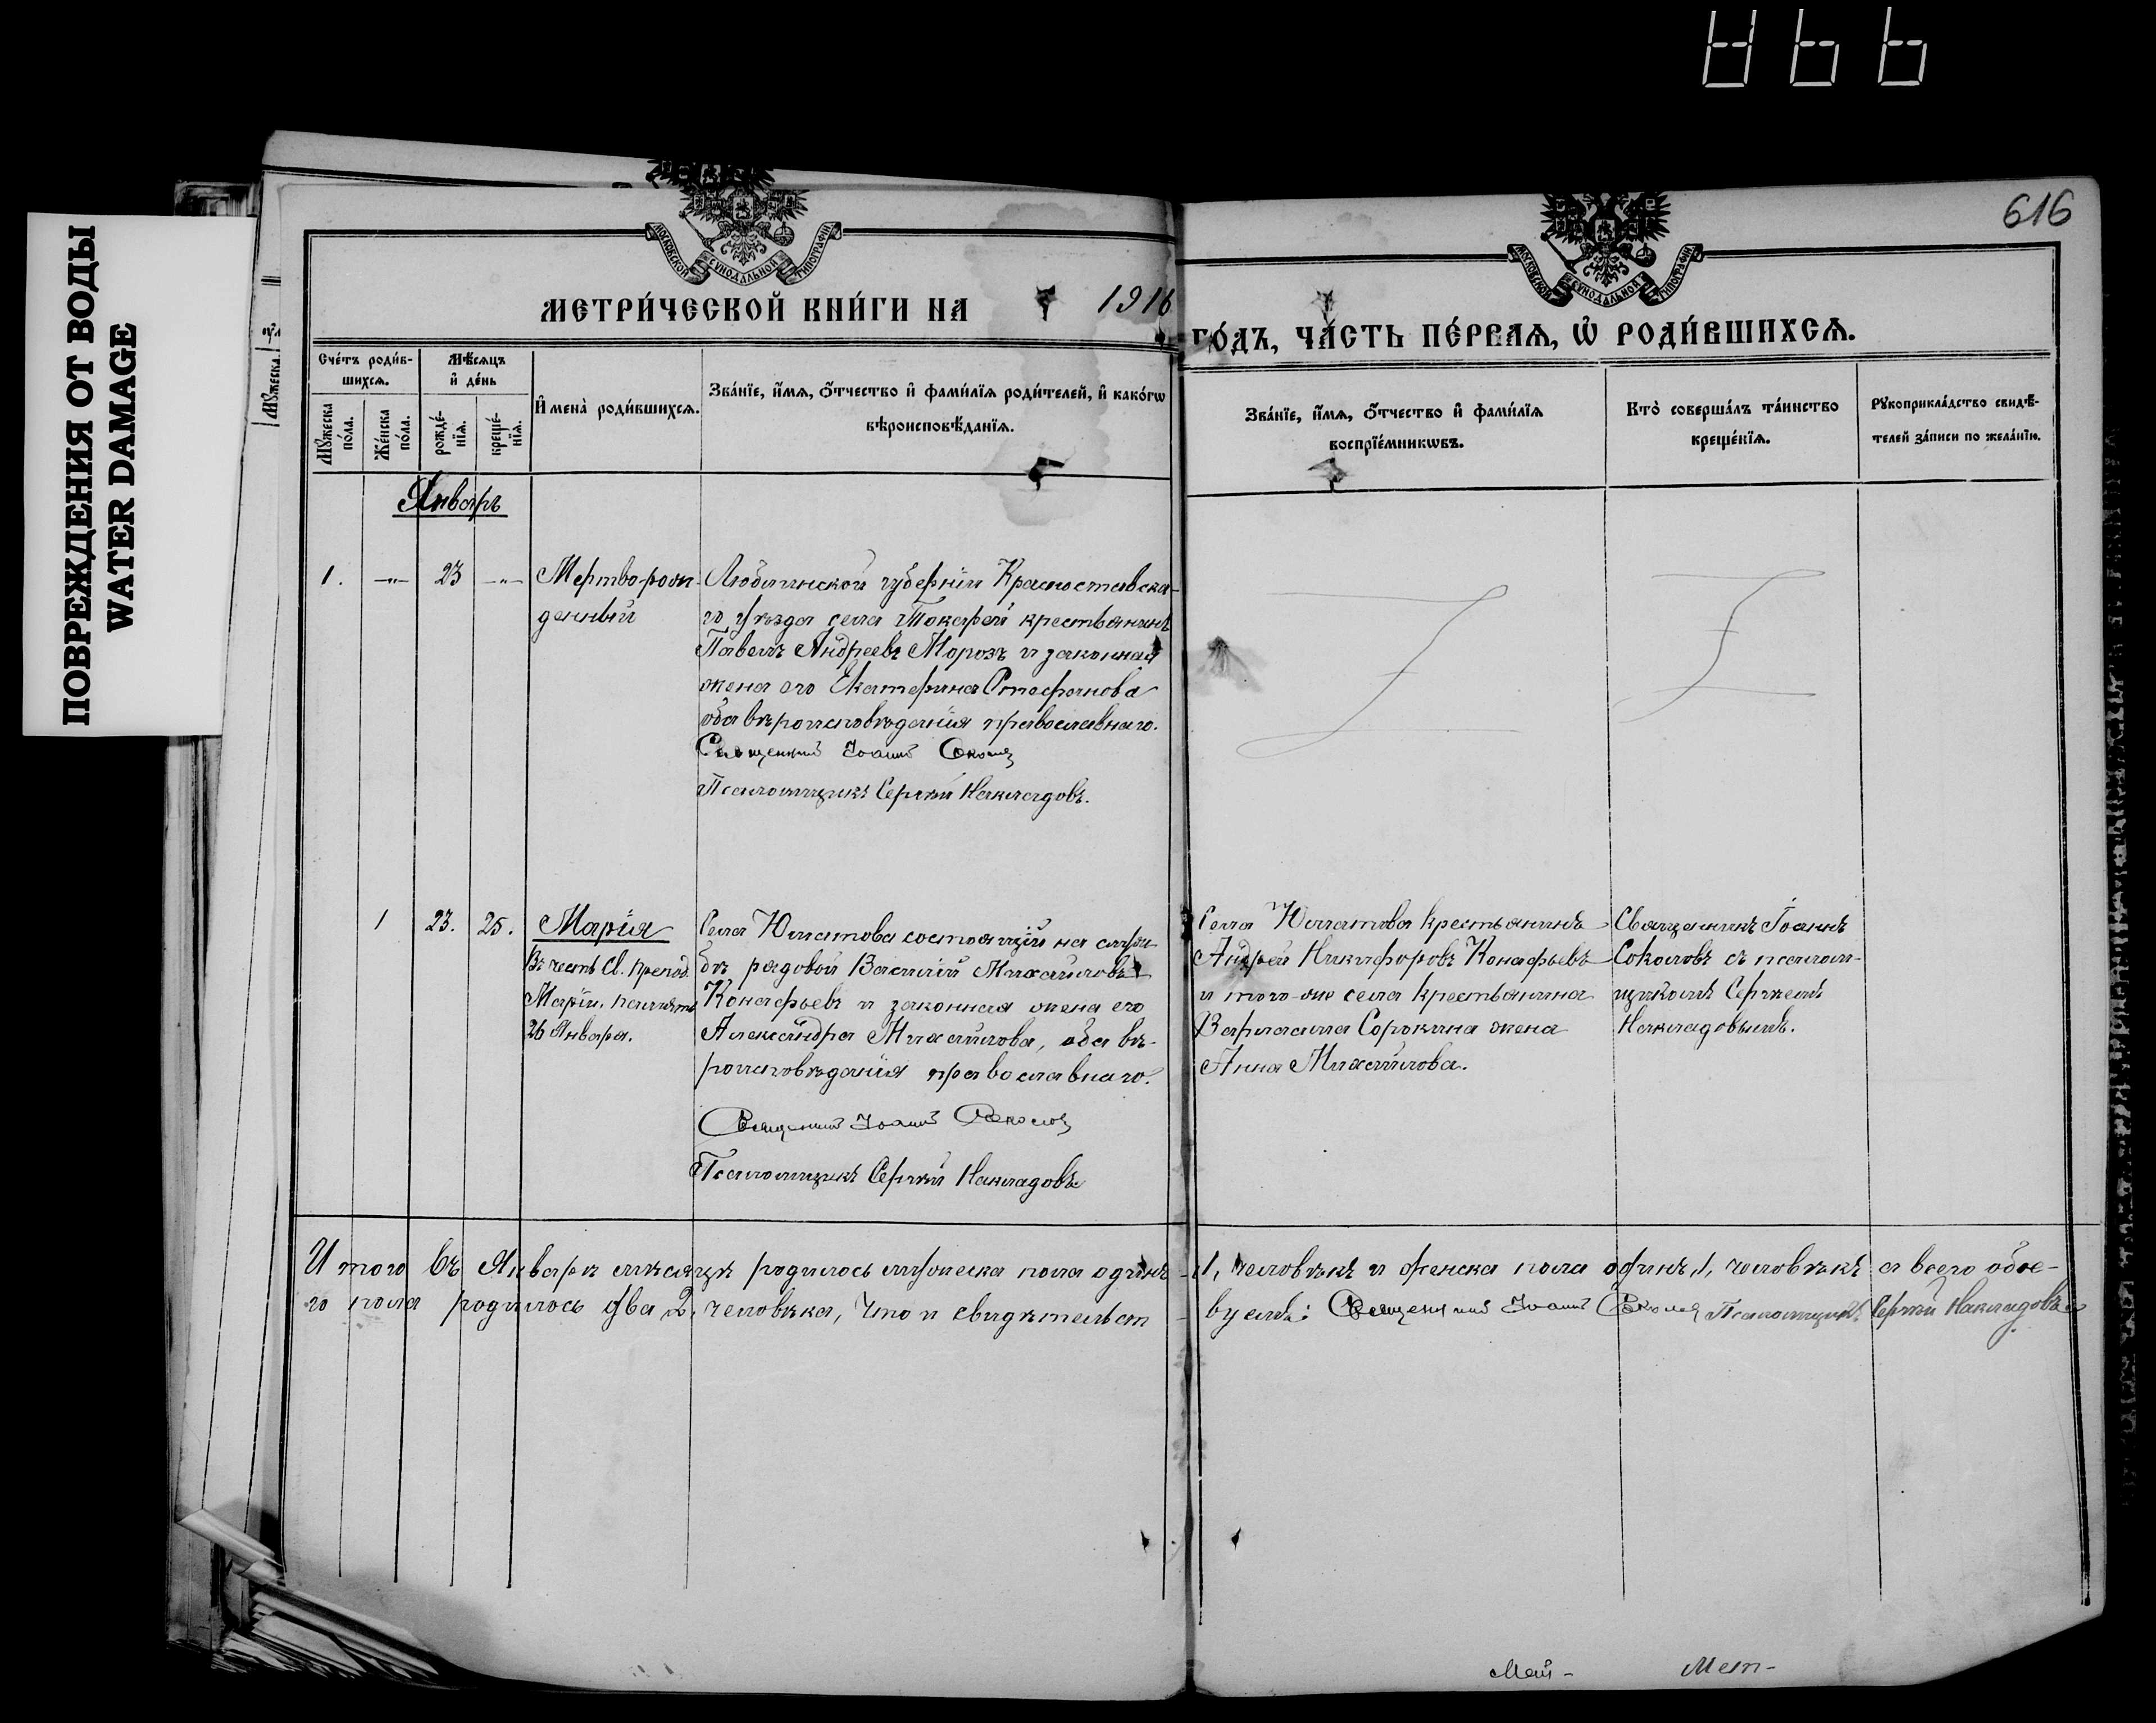 ПОВРЕЖДЕНИЯ ОТ ВОДЫ
WATER DAMAGE
616
МОСКОВСКОЙ СѴНОДАЛЬНОЙ ТИПОГРАФІИ
МОСКОВСКОЙ СѴНОДАЛЬНОЙ ТИПОГРАФІИ
МЕТРИ́ЧЕСКОЙ КНИ́ГИ НА 1916
ГО́ДЪ, ЧА́СТЬ ПЕ́РВАѦ, Ѡ҆ РОДИ́ВШИХСѦ.
Сче́тъ роди́в-
шихсѧ.
Мꙋ́жеска
по́ла.
Же́нска
по́ла.
Мѣ́сѧцъ
и҆ де́нь
рожде́-
нїѧ.
креще́-
нїѧ.
И҆мена̀ роди́вшихсѧ.
Зва́нїе, и҆́мѧ, ѻ҆́тчество и҆ фами́лїѧ роди́телей, и҆ како́гѡ
вѣроисповѣ́данїѧ.
Зва́нїе, и҆́мѧ, ѻ҆́тчество и҆ фами́лїѧ
воспрїе́мникѡвъ.
Кто̀ соверша́лъ та́инство
креще́нїѧ.
Рꙋкоприкла́дство свидѣ́-
телей за́писи по жела́нїю.
Январь
1. —"— 23 —"—
Мертворож-
денный
Люблинской губерніи Красноставска-
го уѣзда села Токарей крестьянинъ
Павелъ Андреевъ Морозъ и законная
жена его Екатерина Стефанова
оба вѣроисповѣданія православнаго.
Священник Іоанн Соколов
Псаломщикъ Сергѣй Накладовъ.
1 23. 25.
Марія
Въ честь Св. препод.
Маріи, память
26 Января.
Села Юматова состоящій на служ-
бѣ рядовой Василій Михайловъ
Конафьевъ и законная жена его
Александра Михайлова, оба вѣ-
роисповѣданія православнаго.
Священник Іоанн Соколов
Псаломщикъ Сергѣй Накладовъ
Села Юматова крестьянинъ
Андрей Никифоровъ Конафьевъ
и того-же села крестьянина
Варлаама Сорокина жена
Анна Михайлова.
Священникъ Іоаннъ
Соколовъ съ псалом-
щикомъ Сергѣемъ
Накладовымъ.
Итого въ Январѣ мѣсяцѣ родилось мужеска пола одинъ -1, человѣкъ и женска пола одинъ, 1, человѣкъ а всего обое-
го пола родилось два 2, человѣка, Что и свидѣтельст - вуемъ: Священник Іоанн Соколов Псаломщикъ Сергѣй Накладовъ
Мет-